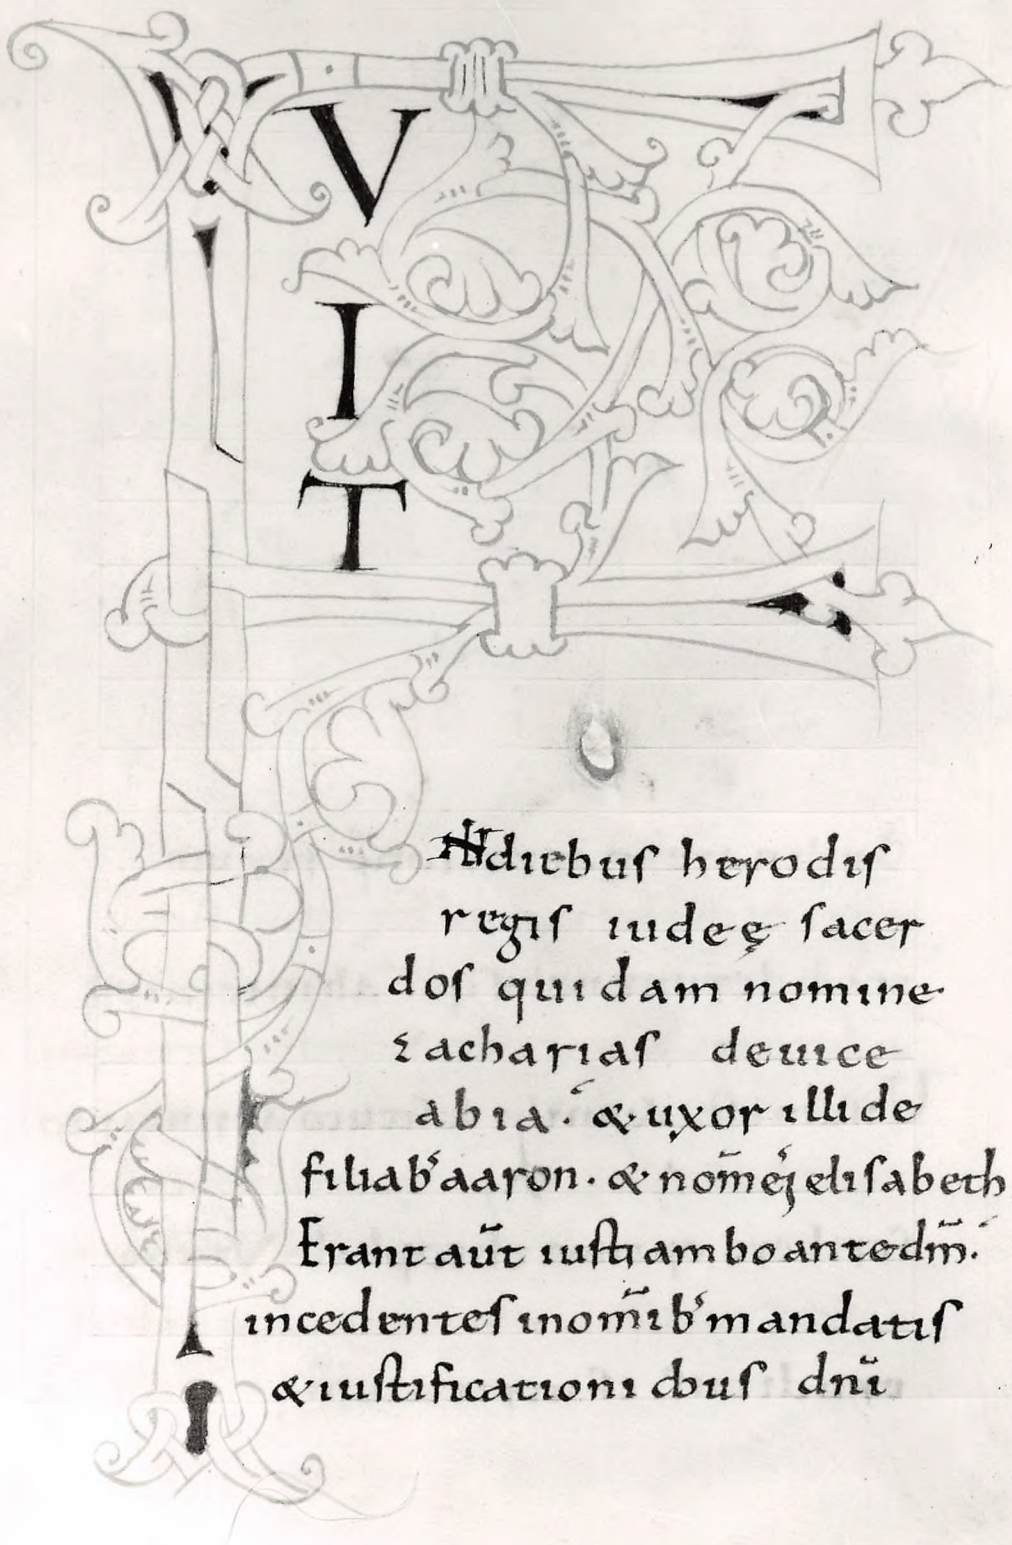 F
V
I
T
IN diebus herodis
regis iudeę sacer
dos quidam nomine
zacharias de uice
abia. & uxor illi de
filiab' aaron. & nom̄ ei᾽ elisabeth
Erant aūt iusti ambo ante dm̄.
incedentes in om̄ib' mandatis
& iustificationibus dn̄i